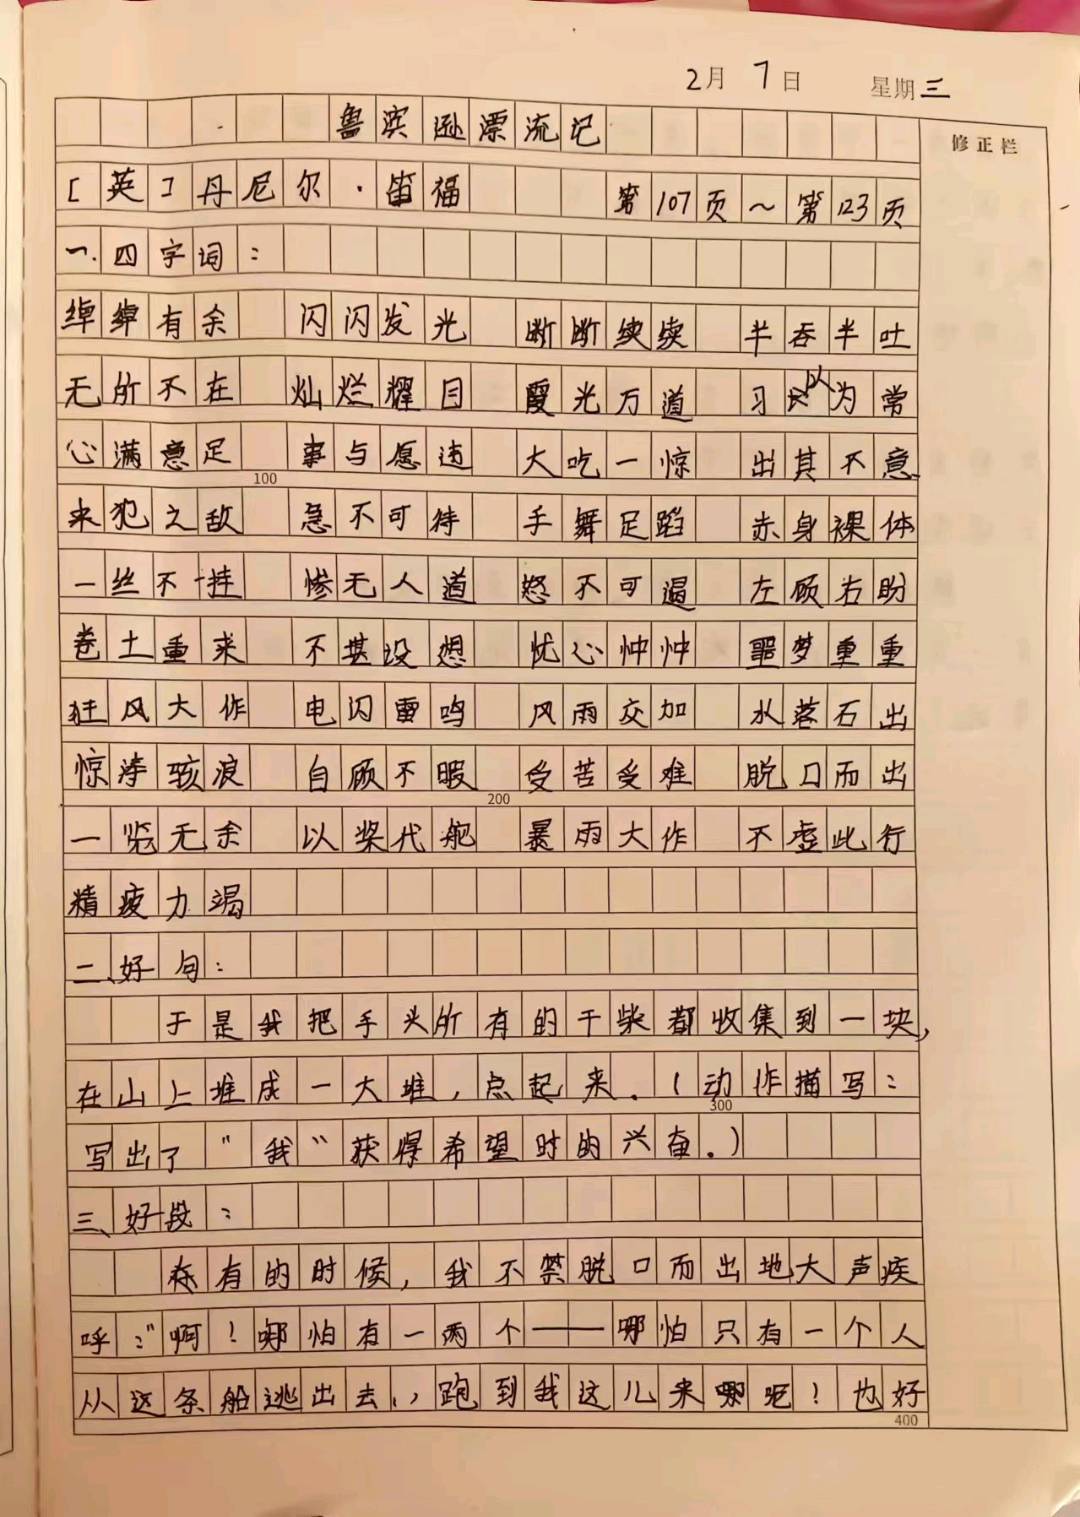 2月 7日 星期三
鲁宾逊漂流记
修正栏
[英]丹尼尔·笛福 第107页~第123页
一.四字词:
绰绰有余 闪闪发光 断断续续 半吞半吐
无所不在 灿烂耀目 霞光万道 习以为常
心满意足 事与愿违 大吃一惊 出其不意
100
来犯之敌 急不可待 手舞足蹈 赤身裸体
一丝不挂 惨无人道 怒不可遏 左顾右盼
卷土重来 不堪设想 忧心忡忡 噩梦重重
狂风大作 电闪雷鸣 风雨交加 水落石出
惊涛骇浪 自顾不暇 受苦受难 脱口而出
200
一览无余 以桨代舵 暴雨大作 不虚此行
精疲力竭
二、好句:
于是我把手头所有的干柴都收集到一块,
在山上堆成一大堆,点起来.(动作描写:
300
写出了"我"获得希望时的兴奋.)
三、好段:
有的时候,我不禁脱口而出地大声疾
呼:"啊!哪怕有一两个——哪怕只有一个人
从这条船逃出去,,跑到我这儿来哪呢!也好
400